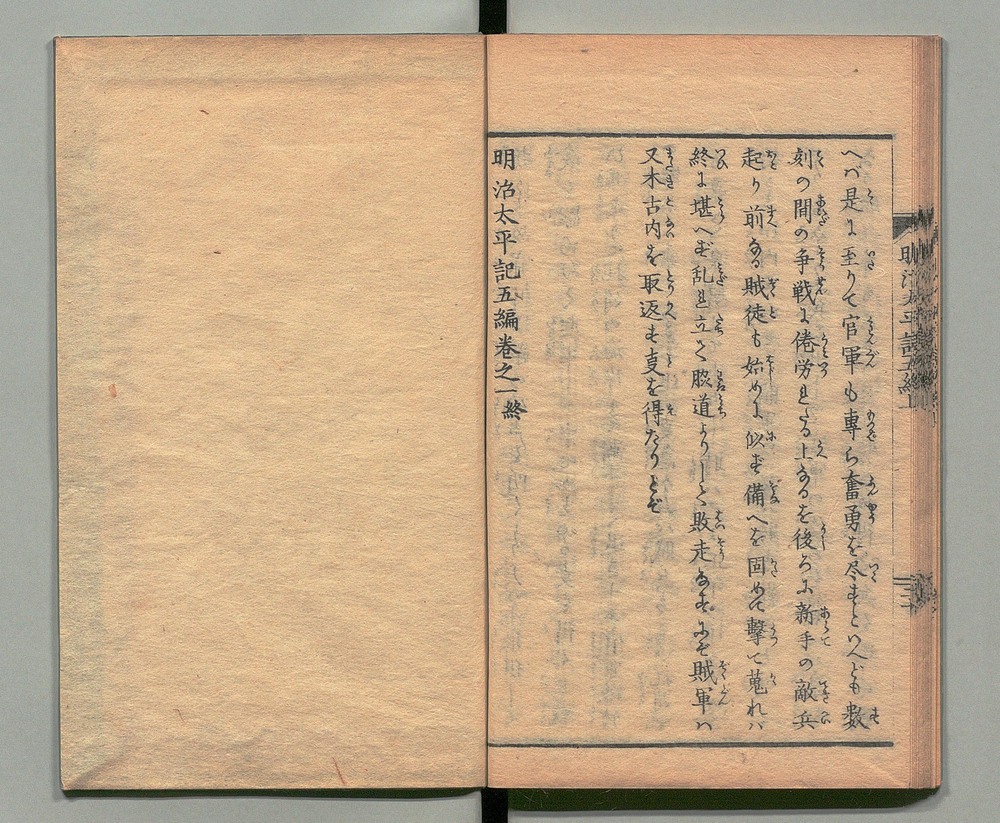 へバ是に至りて官軍も専ら奮勇を尽すといへども数
刻の間の争戦に倦労れたる上なるを後ろに新手の敵兵
起り前なる賊徒も始めに似ず備へを固めて撃て蒐れバ
終に堪へず乱れ立て脇道よりして敗走なすにぞ賊軍ハ
又木古内を取返す事を得たりとぞ
明治太平記五編巻之一終
明治太平記五編上